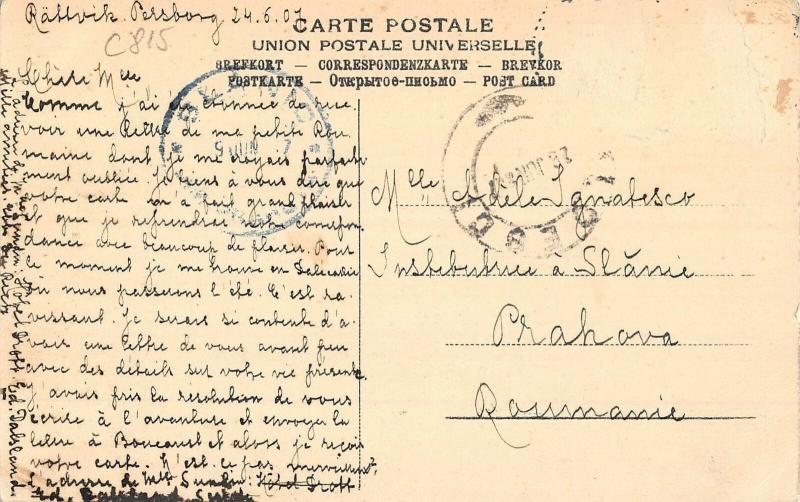 Rättvik Persborg 24.6.07
C815
CARTE POSTALE
UNION POSTALE UNIVERSELLE
BREFKORT — CORRESPONDENZKARTE — BREVKOR
POSTKARTE — Открытое-письмо — POST CARD
Chère Melle
Comme j'ai été étonnée de rece-
voir une lettre de ma petite Rou-
maine dont je me croyais parfaite-
ment oubliée. Je tiens à vous dire que
votre carte m'a fait grand plaisir
et que je reprendrai notre correspon-
dance avec beaucoup de plaisir. Pour
le moment je me trouve en Dalécarlie
où nous passerons l'été. C'est ra-
vissant. Je serais si contente d'a-
voir une lettre de vous avant peu
avec des détails sur votre vie présente.
J'avais pris la résolution de vous
écrire à l'aventure et envoyer la
lettre à Boucarest et alors je reçois
votre carte. N'est-ce pas merveilleux?
L'adresse de Hôtel Drott
Ed. Dalsland
Mille amitiés
Hôtel Drott Ed. Dalsland
Melle Adele Ignatesco
Institutrice à Slănic
Prahova
Roumanie